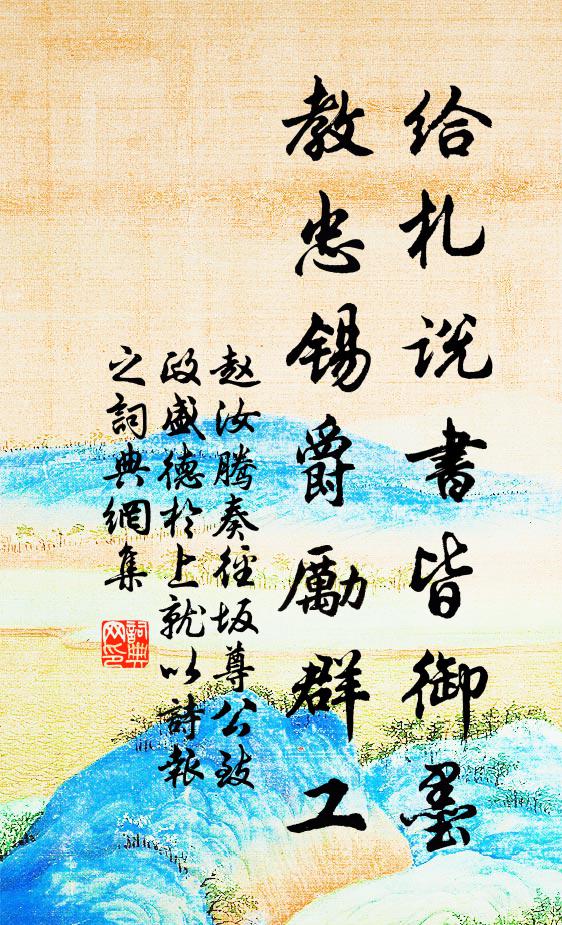 给札说書皆御墨
教忠锡爵勵群工
赵汝腾奏径坂尊公致
政盛德於上就以詩報
之詞典網集
詞典網印